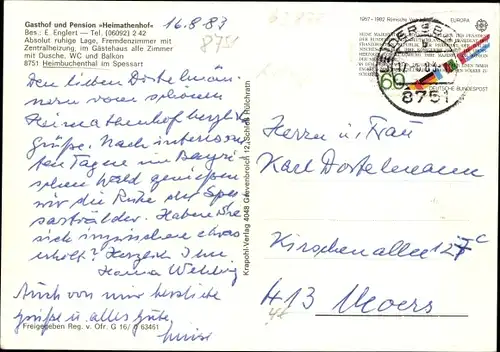 Gasthof und Pension »Heimathenhof«
Bes.: E. Englert — Tel. (06092) 2 42
Absolut ruhige Lage, Fremdenzimmer mit
Zentralheizung, im Gästehaus alle Zimmer
mit Dusche, WC und Balkon
8751 Heimbuchenthal im Spessart
16.8.83
Den lieben Dostelmän-
nern vom schönen
Heimathenhof herzliche
Grüße. Nach interessan-
ten Tagen im Bayri-
schen Wald genießen
wir die Ruhe der Spes-
sartwälder. Haben Sie
sich inzwischen etwas
erholt? Herzlichst Ihre
Hanna
Auch von mir herzliche
Grüße u. alles Gute,
Freigegeben Reg. v. Ofr. G 16/ 63461
Krapohl-Verlag 4048 Grevenbroich 12, Schloß Hülchrath
1957-1982 Römische Verträge
EUROPA
60
DEUTSCHE BUNDESPOST
8751
Herrn u. Frau
Karl Dostelmann
Kirschenallee 127c
413 Moers